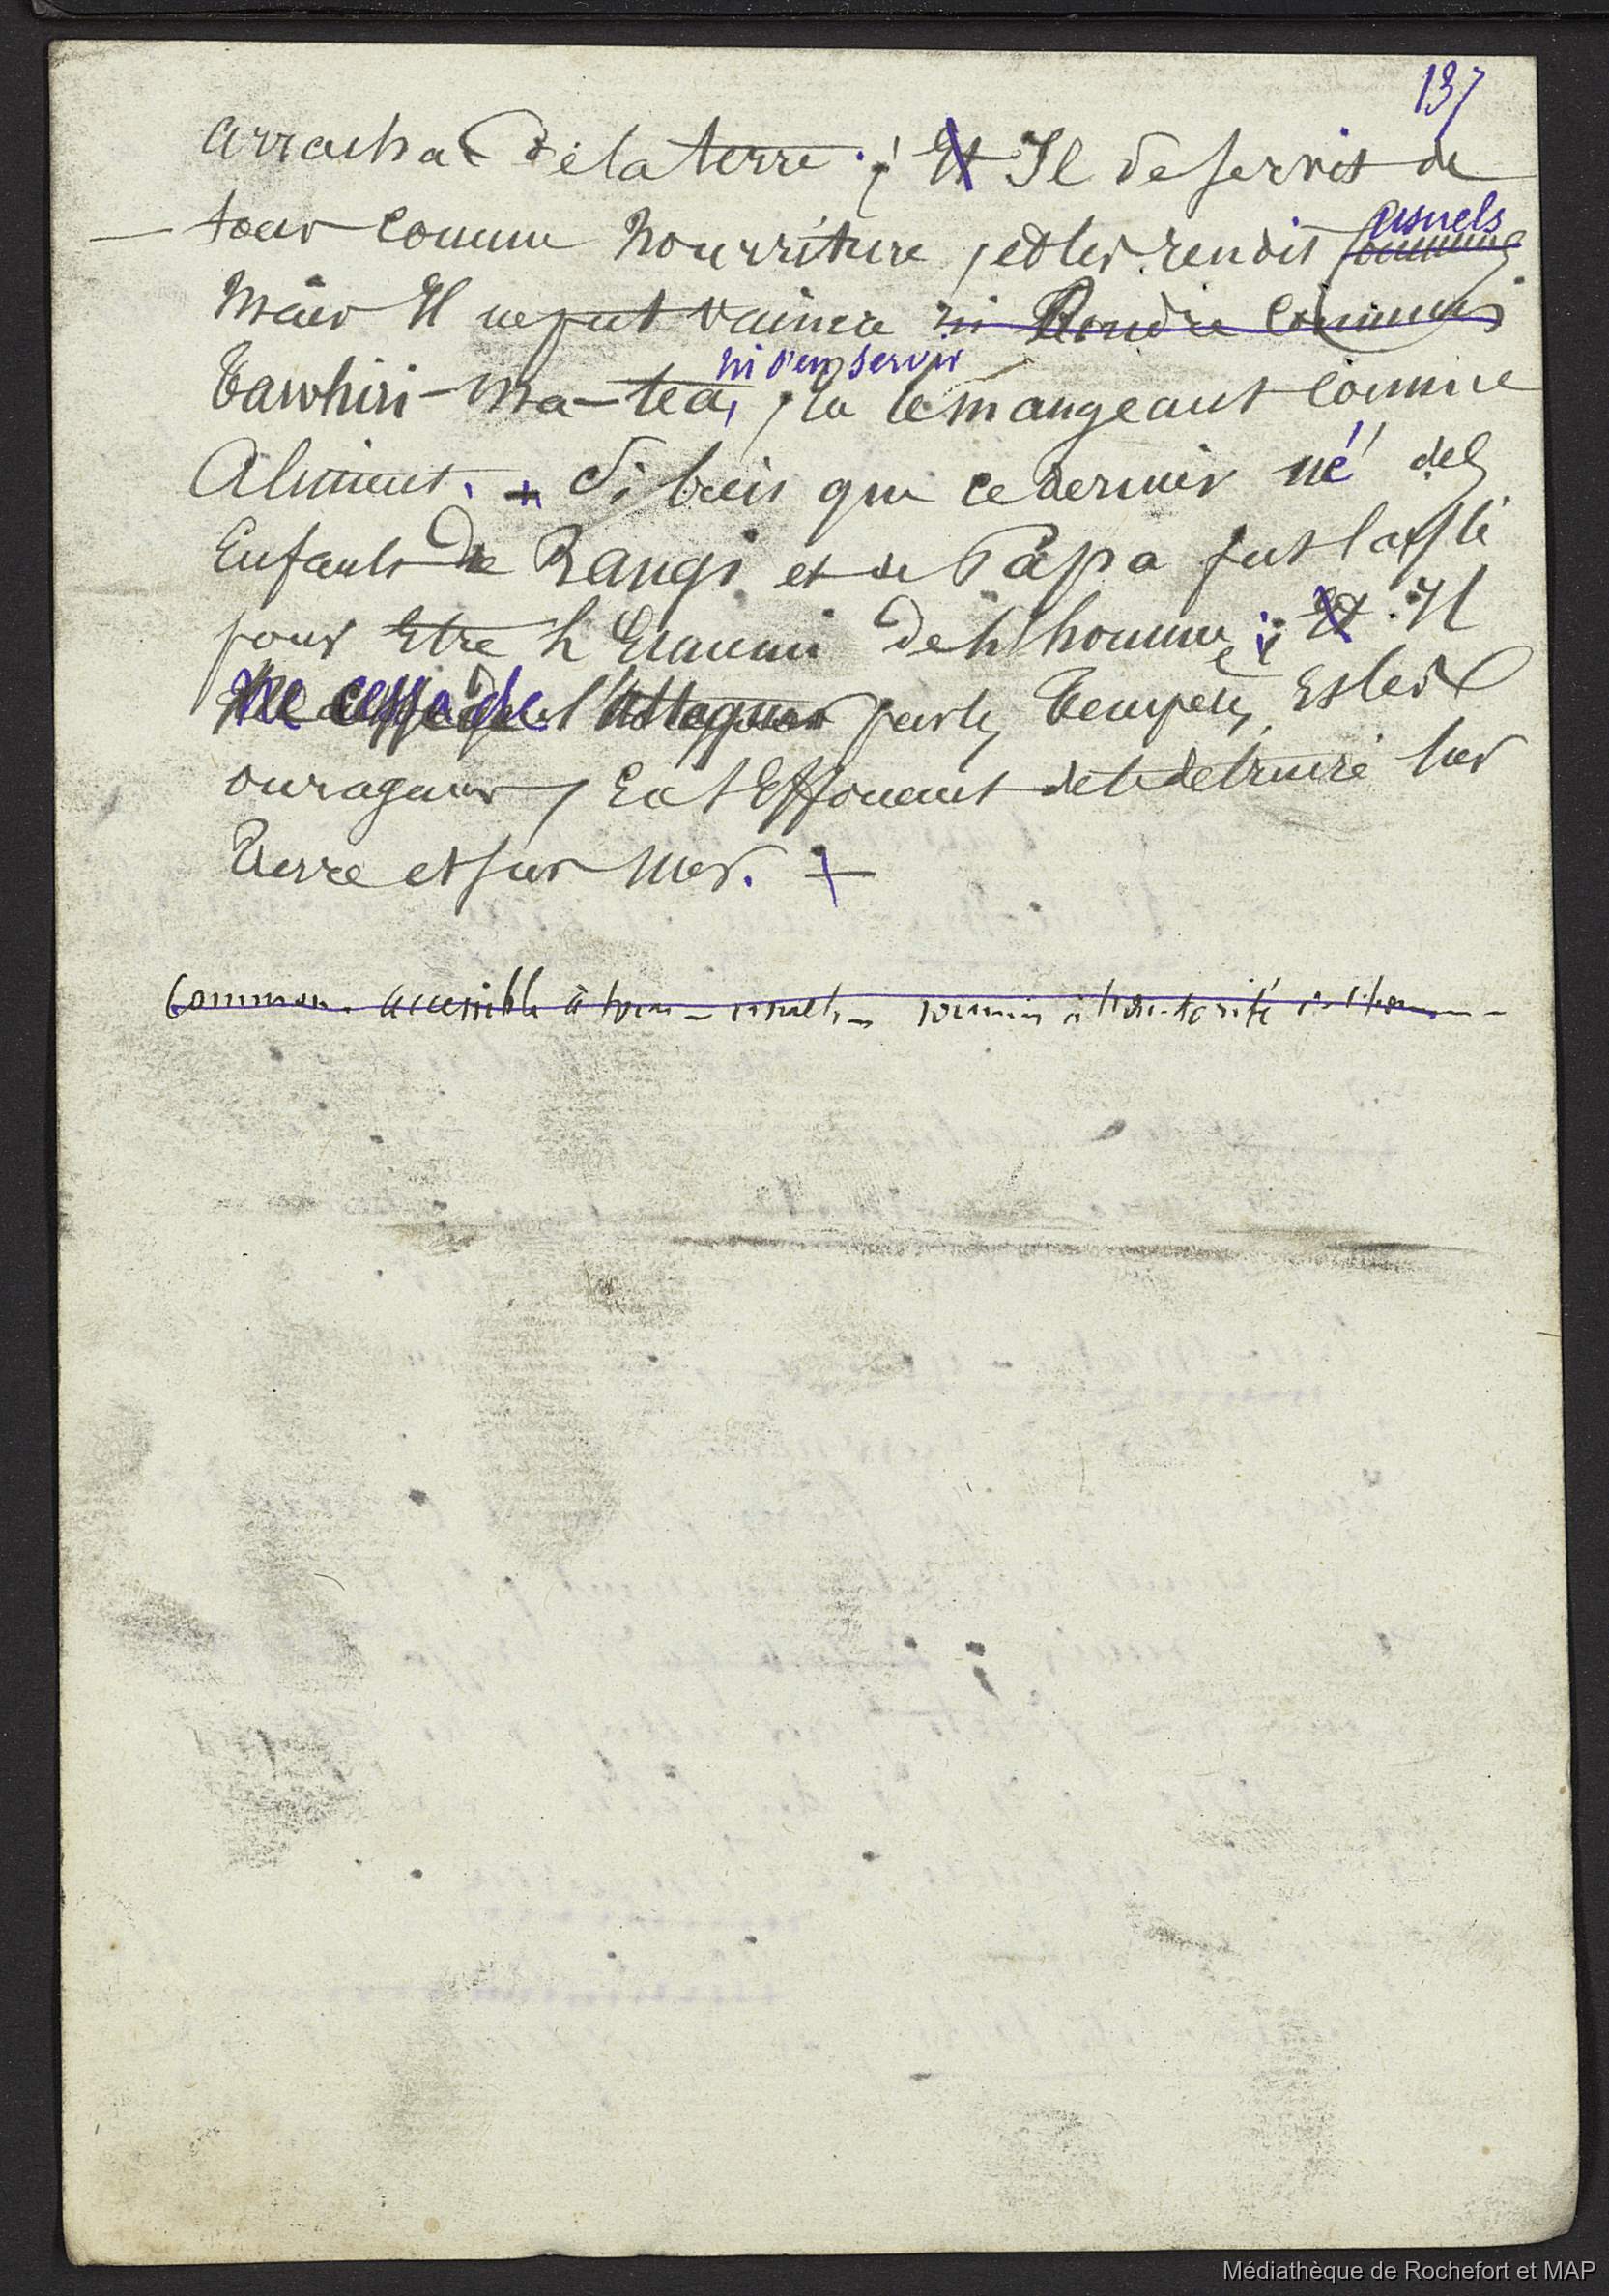 137
arracha de la terre. ; Et Il se servit de
tous comme nourriture, et les rendit communs usuels
Mais Il ne put vaincre ni Rendre communs
ni s'en servir
Tawhiri-Ma-tea, le mangeant comme
Aliment. + Si bien que ce dernier né des
Enfants de Rangi et de Papa fut laissé
pour Etre l'Ennemi de l'homme ; Et Il
ne cessa de l'Attaquer par les Tempêtes, Et les
ouragans, Ens'Efforcant de le detruire sur
Terre et sur Mer. +
Common. accessible à tous - usuels - soumis à l'autorité de l'homme -
Médiathèque de Rochefort et MAP